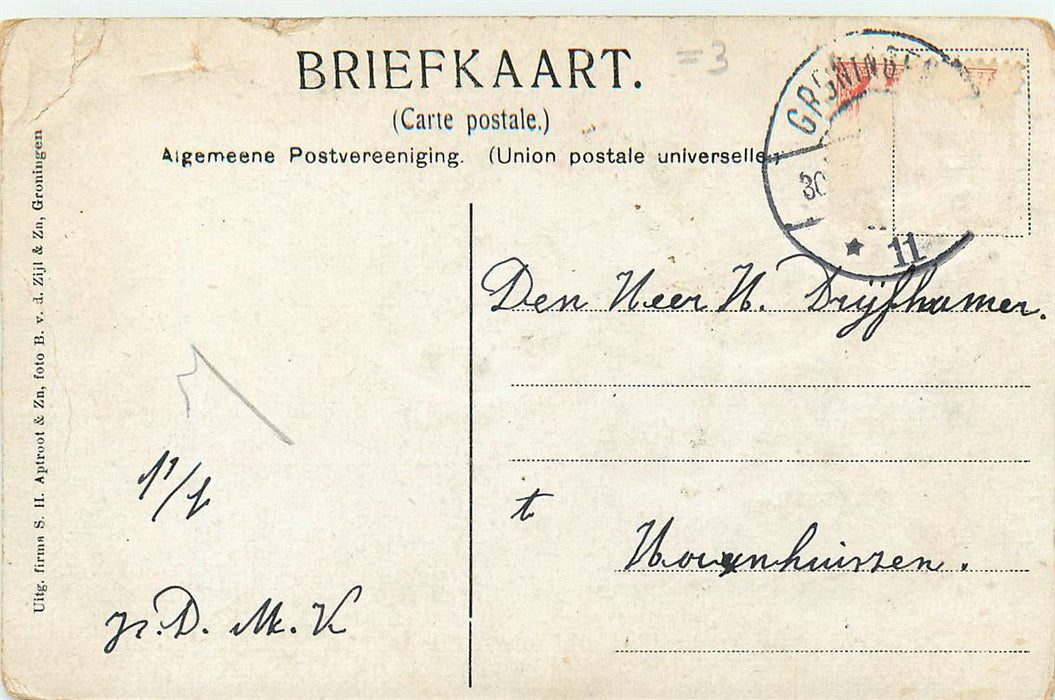 BRIEFKAART.
=3
(Carte postale.)
Algemeene Postvereeniging. (Union postale universelle.)
GRONINGEN
30
★ 11
Uitg. firma S. H. Aptroot & Zn, foto B. v. d. Zijl & Zn, Groningen
Den Heer H. Drijfhamer.
t
p. D. M. V